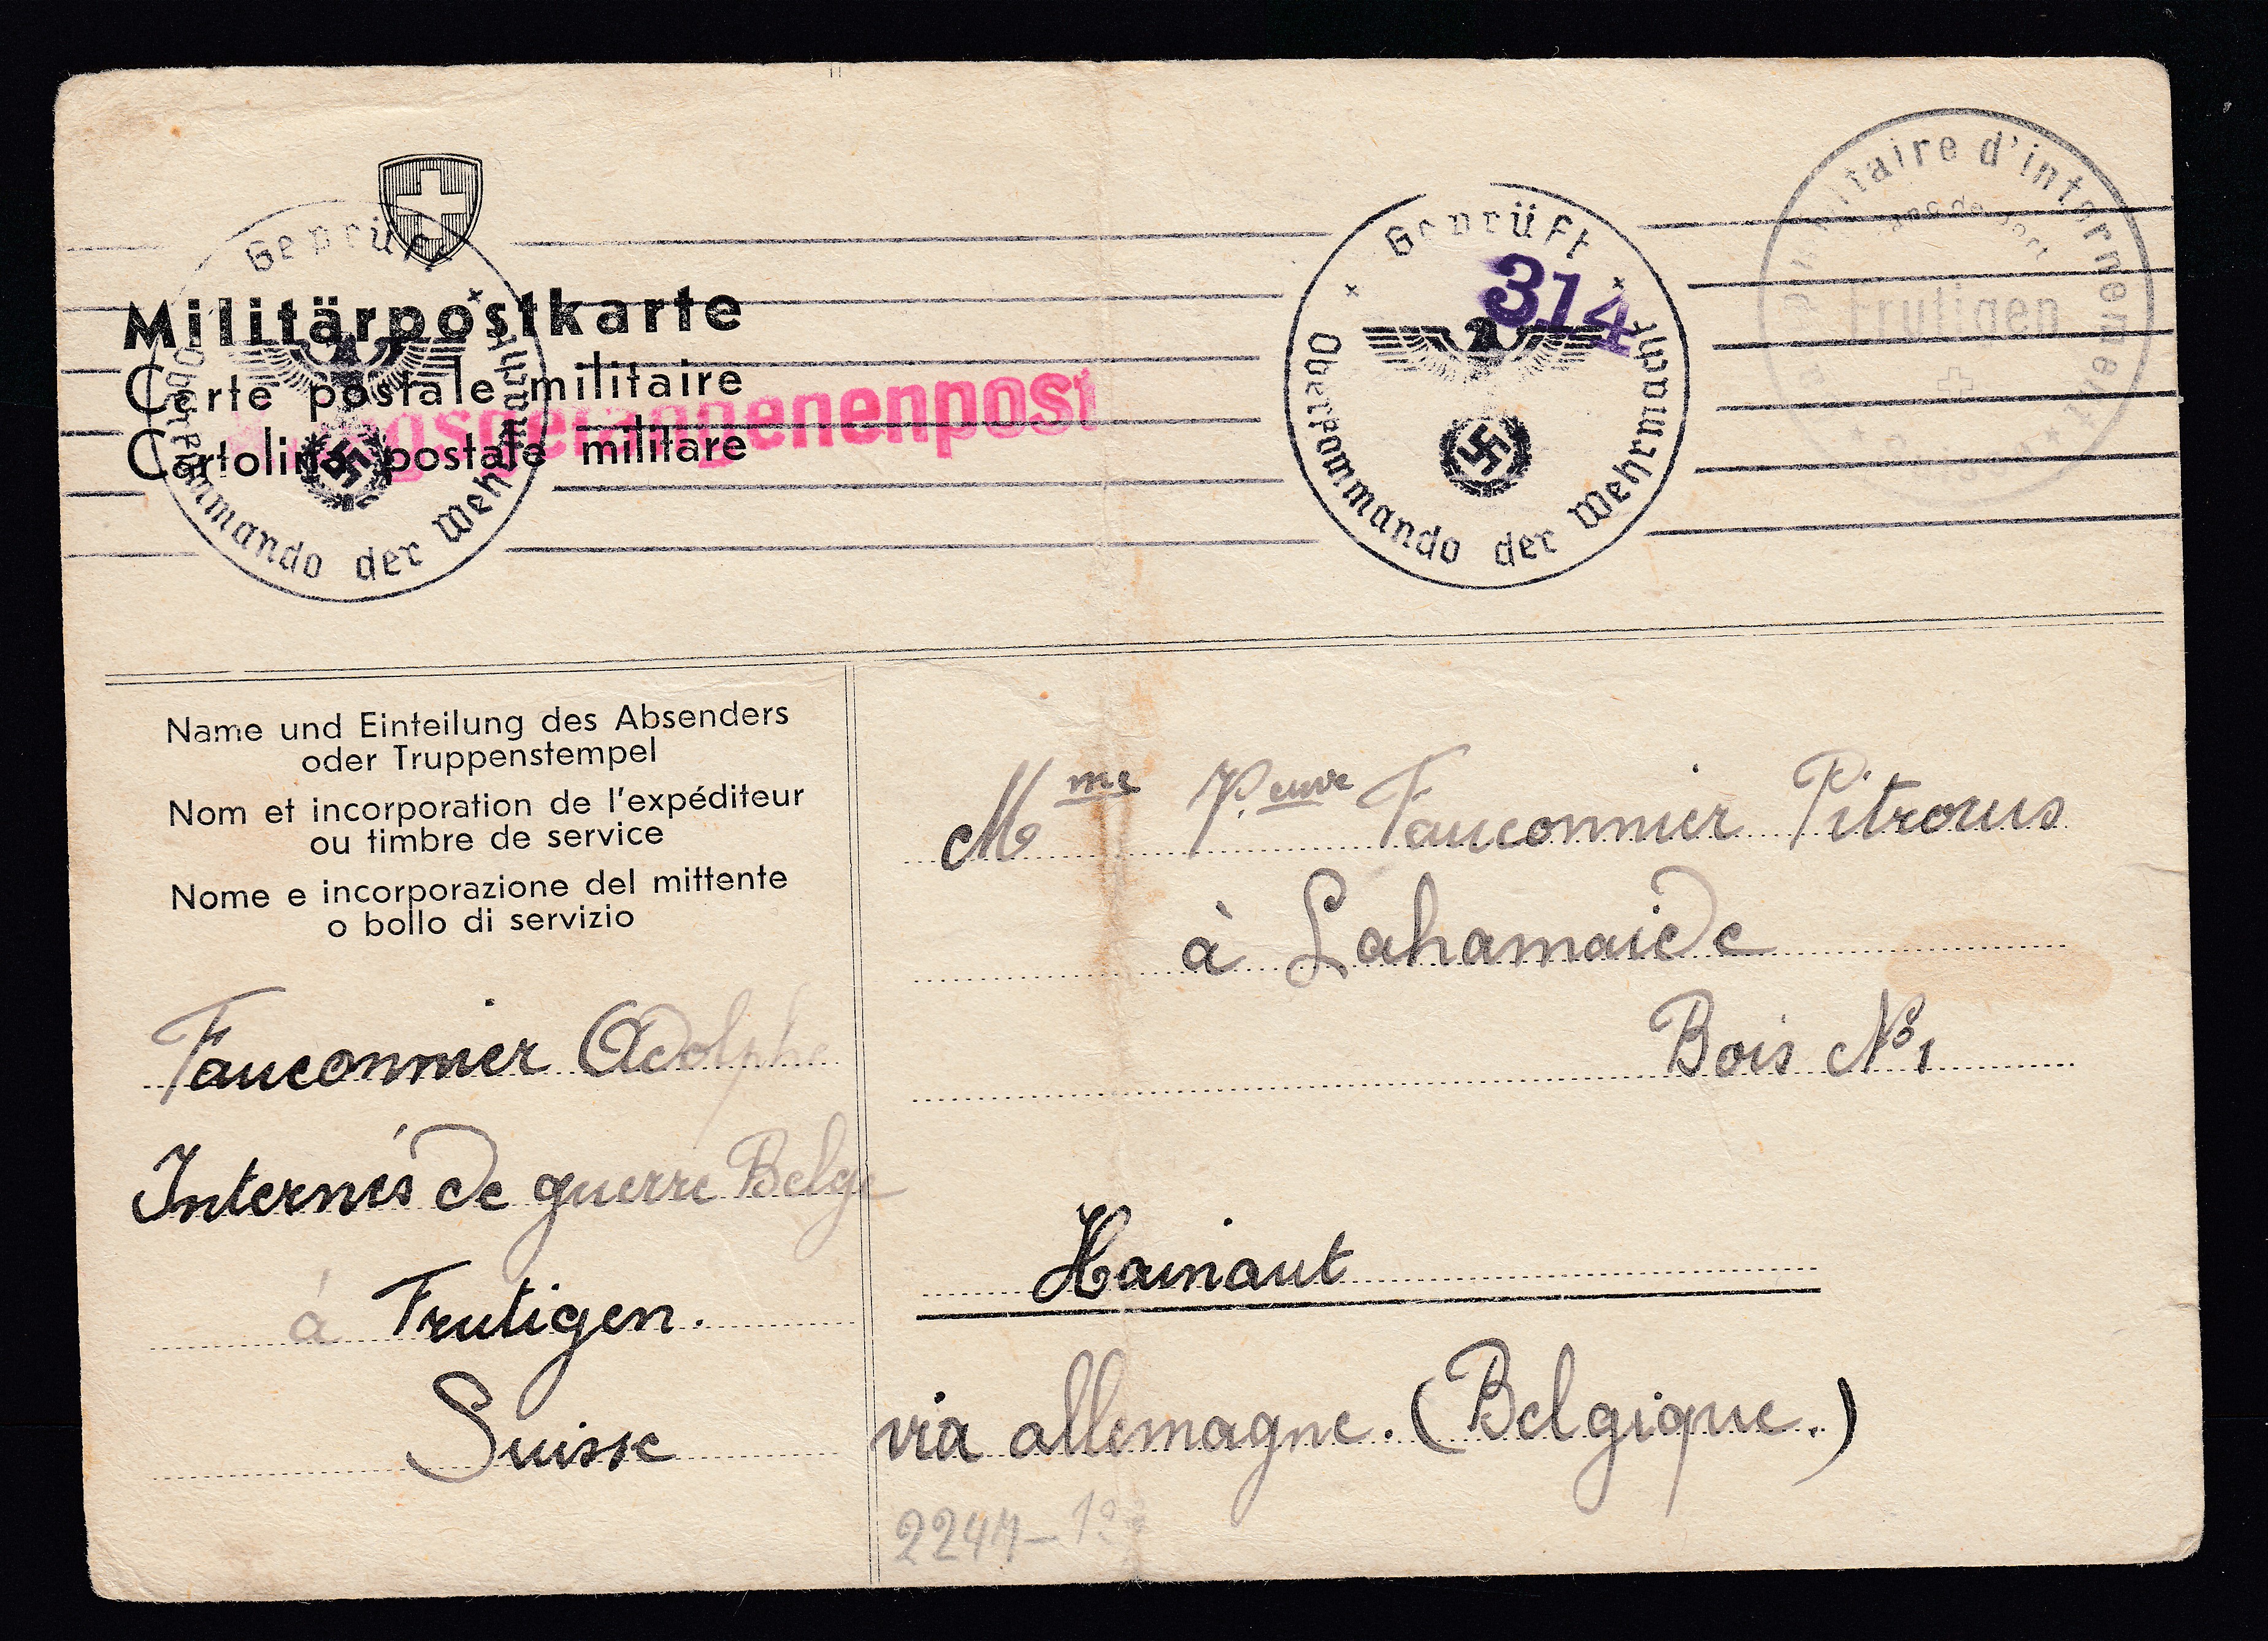 Militärpostkarte
Carte postale militaire
Cartolina postale militare
Geprüft
Oberkommando der Wehrmacht
Kriegsgefangenenpost
Geprüft
314
Oberkommando der Wehrmacht
militaire d'internement
Frutigen
Name und Einteilung des Absenders
oder Truppenstempel
Nom et incorporation de l'expéditeur
ou timbre de service
Nome e incorporazione del mittente
o bollo di servizio
Fauconnier Adolphe
Internés de guerre Belge
á Frutigen.
Suisse
Mme Veuve Fauconnier Pitrous
à Lahamaide
Bois No 1
Hainaut
via allemagne. (Belgique.)